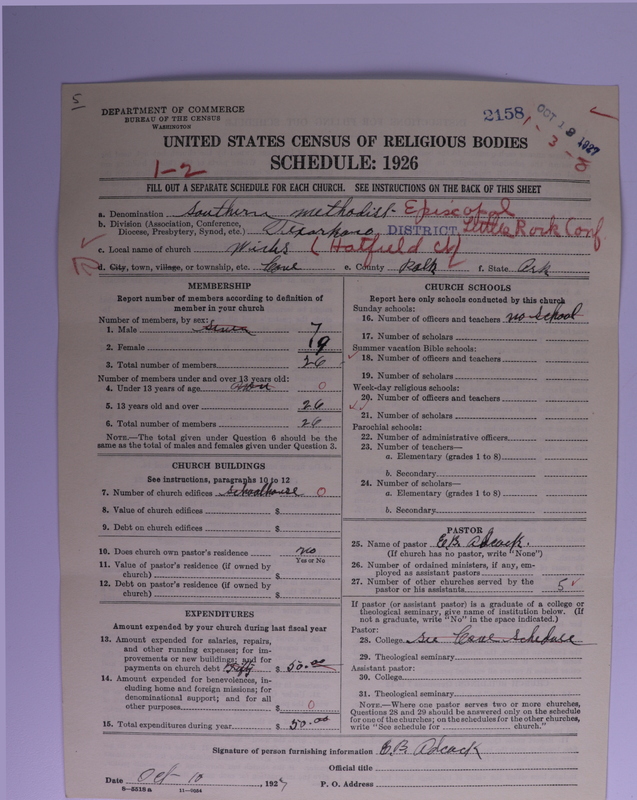 5
DEPARTMENT OF COMMERCE
BUREAU OF THE CENSUS
WASHINGTON
2158
OCT 19 1927
1-3-8
UNITED STATES CENSUS OF RELIGIOUS BODIES
SCHEDULE: 1926
1-2
FILL OUT A SEPARATE SCHEDULE FOR EACH CHURCH. SEE INSTRUCTIONS ON THE BACK OF THIS SHEET
a. Denomination Southern Methodist - Episcopol
b. Division (Association, Conference, Diocese, Presbytery, Synod, etc.) Texarkana, DISTRICT, Little Rock Conf.
c. Local name of church Wicks (Hatfield ch)
d. City, town, village, or township, etc. Cove e. County Polk f. State Ark
MEMBERSHIP
Report number of members according to definition of member in your church
Number of members, by sex:
1. Male seven 7
2. Female 19
3. Total number of members 26
Number of members under and over 13 years old:
4. Under 13 years of age 0
5. 13 years old and over 26
6. Total number of members 26
NOTE.—The total given under Question 6 should be the same as the total of males and females given under Question 3.
CHURCH BUILDINGS
See instructions, paragraphs 10 to 12
7. Number of church edifices Schoolhouse 0
8. Value of church edifices $
9. Debt on church edifices $
10. Does church own pastor's residence no
Yes or No
11. Value of pastor's residence (if owned by church) $
12. Debt on pastor's residence (if owned by church) $
EXPENDITURES
Amount expended by your church during last fiscal year
13. Amount expended for salaries, repairs, and other running expenses; for improvements or new buildings; and for payments on church debt Fifty $ 50.00
14. Amount expended for benevolences, including home and foreign missions; for denominational support; and for all other purposes $ 0
15. Total expenditures during year $ 50.00
CHURCH SCHOOLS
Report here only schools conducted by this church
Sunday schools:
16. Number of officers and teachers no school
17. Number of scholars
Summer vacation Bible schools:
18. Number of officers and teachers
19. Number of scholars
Week-day religious schools:
20. Number of officers and teachers
21. Number of scholars
Parochial schools:
22. Number of administrative officers
23. Number of teachers—
a. Elementary (grades 1 to 8)
b. Secondary
24. Number of scholars—
a. Elementary (grades 1 to 8)
b. Secondary
PASTOR
25. Name of pastor C.B. Adcock.
(If church has no pastor, write "None")
26. Number of ordained ministers, if any, employed as assistant pastors
27. Number of other churches served by the pastor or his assistants 5
If pastor (or assistant pastor) is a graduate of a college or theological seminary, give name of institution below. (If not a graduate, write "No" in the space indicated.)
Pastor:
28. College See Cove Schedule
29. Theological seminary
Assistant pastor:
30. College
31. Theological seminary
NOTE.—Where one pastor serves two or more churches, Questions 28 and 29 should be answered only on the schedule for one of the churches; on the schedules for the other churches, write "See schedule for church."
Signature of person furnishing information C.B. Adcock
Official title
Date Oct-10, 1927 P. O. Address
8-5818a 11-9684